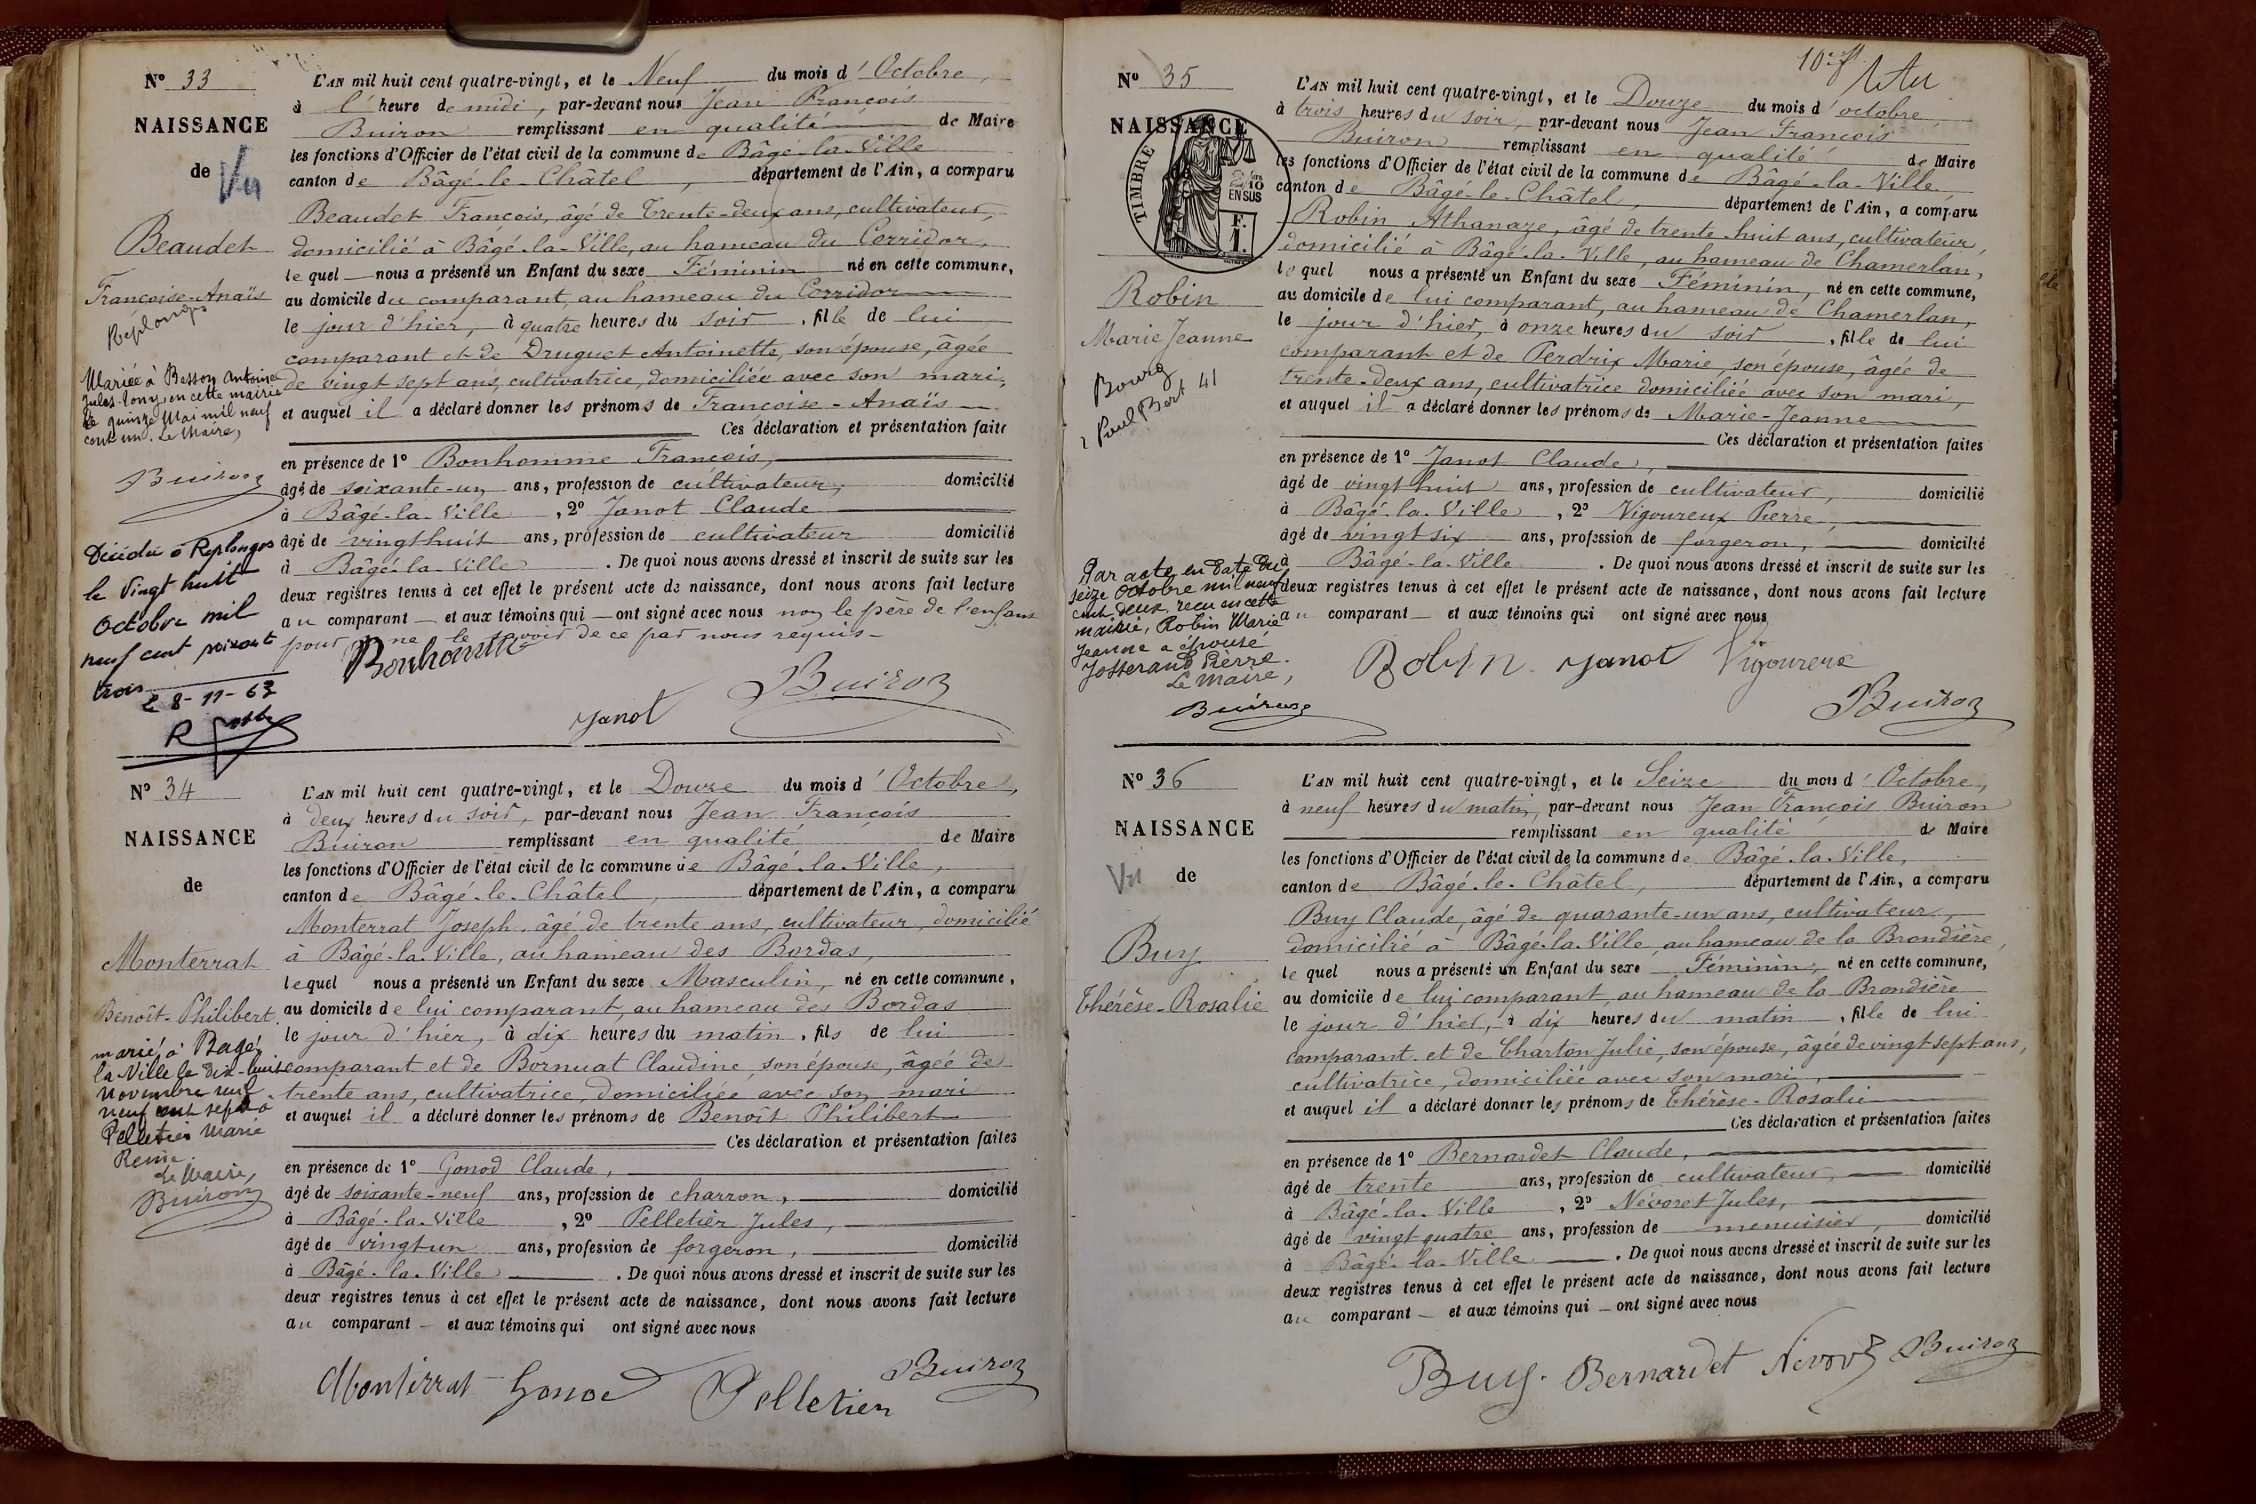 Nº 33
NAISSANCE
de
Vu
Beaudet
Françoise-Anaïs
Replonges
Mariée à Besson Antoine
Jules-Tony, en cette mairie
le quinze Mai mil neuf
cent un. Le Maire,
Buiron
Décédée à Replonges
le vingt huit
Octobre mil
neuf cent soixante
trois
28-11-63
L'AN mil huit cent quatre-vingt, et le Neuf du mois d'Octobre,
à l'heure de midi, par-devant nous Jean François
Buiron remplissant en qualité de Maire
les fonctions d'Officier de l'état civil de la commune de Bâgé-la-Ville
canton de Bâgé-le-Châtel, département de l'Ain, a comparu
Beaudet François, âgé de Trente-deux ans, cultivateur,
domicilié à Bâgé-la-Ville, au hameau du Corridor,
lequel nous a présenté un Enfant du sexe Féminin né en cette commune,
au domicile du comparant, au hameau du Corridor
le jour d'hier, à quatre heures du soir, fille de lui
comparant et de Druguet Antoinette, son épouse, âgée
de vingt sept ans, cultivatrice, domiciliée avec son mari,
et auquel il a déclaré donner les prénoms de Françoise-Anaïs
Ces déclaration et présentation faite
en présence de 1º Bonhomme François,
âgé de soixante-un ans, profession de cultivateur, domicilié
à Bâgé-la-Ville, 2º Janot Claude
âgé de vingt huit ans, profession de cultivateur domicilié
à Bâgé-la-Ville. De quoi nous avons dressé et inscrit de suite sur les
deux registres tenus à cet effet le présent acte de naissance, dont nous avons fait lecture
au comparant et aux témoins qui ont signé avec nous non le père de l'enfant
pour ne le savoir de ce par nous requis
Bonhomme
Janot
Buiron
Nº 34
NAISSANCE
de
Monterrat
Benoît-Philibert
marié à Bagé
la Ville le dix-huit
novembre
neuf cent sept à
Pelletier Marie
Reine.
Le Maire,
Buiron
L'AN mil huit cent quatre-vingt, et le Douze du mois d'Octobre,
à deux heures du soir, par-devant nous Jean François
Buiron remplissant en qualité de Maire
les fonctions d'Officier de l'état civil de la commune de Bâgé-la-Ville,
canton de Bâgé-le-Châtel, département de l'Ain, a comparu
Monterrat Joseph, âgé de trente ans, cultivateur, domicilié
à Bâgé-la-Ville, au hameau des Bordas,
lequel nous a présenté un Enfant du sexe Masculin, né en cette commune,
au domicile de lui comparant, au hameau des Bordas
le jour d'hier, à dix heures du matin, fils de lui
comparant et de Bornuat Claudine, son épouse, âgée de
trente ans, cultivatrice, domiciliée avec son mari
et auquel il a déclaré donner les prénoms de Benoît Philibert
Ces déclaration et présentation faites
en présence de 1º Gonod Claude,
âgé de soixante-neuf ans, profession de charron, domicilié
à Bâgé-la-Ville, 2º Pelletier Jules,
âgé de vingt un ans, profession de forgeron, domicilié
à Bâgé-la-Ville. De quoi nous avons dressé et inscrit de suite sur les
deux registres tenus à cet effet le présent acte de naissance, dont nous avons fait lecture
au comparant et aux témoins qui ont signé avec nous
Monterrat Gonod Pelletier Buiron
10e ff
Nº 35
NAISSANCE
TIMBRE
2/10 EN SUS
F. 1.
Robin
Marie Jeanne
Bourg
r Paul Bert 41
Par acte en date du
seize Octobre mil neuf
cent deux, reçu en cette
mairie, Robin Marie
Jeanne a épousé
Josserand Pierre.
Le Maire,
Buiron
L'AN mil huit cent quatre-vingt, et le Douze du mois d'octobre,
à trois heures du soir, par-devant nous Jean François
Buiron remplissant en qualité de Maire
les fonctions d'Officier de l'état civil de la commune de Bâgé-la-Ville
canton de Bâgé-le-Châtel, département de l'Ain, a comparu
Robin Athanaze, âgé de trente huit ans, cultivateur,
domicilié à Bâgé-la-Ville, au hameau de Chamerlan,
lequel nous a présenté un Enfant du sexe Féminin, né en cette commune,
au domicile de lui comparant, au hameau de Chamerlan,
le jour d'hier, à onze heures du soir, fille de lui
comparant et de Perdrix Marie, son épouse, âgée de
trente-deux ans, cultivatrice domiciliée avec son mari,
et auquel il a déclaré donner les prénoms de Marie-Jeanne
Ces déclaration et présentation faites
en présence de 1º Janot Claude,
âgé de vingt huit ans, profession de cultivateur, domicilié
à Bâgé-la-Ville, 2º Vigoureux Pierre,
âgé de vingt six ans, profession de forgeron, domicilié
à Bâgé-la-Ville. De quoi nous avons dressé et inscrit de suite sur les
deux registres tenus à cet effet le présent acte de naissance, dont nous avons fait lecture
au comparant et aux témoins qui ont signé avec nous
Robin Janot Vigoureux
Buiron
Nº 36
NAISSANCE
Vu de
Buy
Thérèse-Rosalie
L'AN mil huit cent quatre-vingt, et le Seize du mois d'Octobre,
à neuf heures du matin, par-devant nous Jean François Buiron
remplissant en qualité de Maire
les fonctions d'Officier de l'état civil de la commune de Bâgé-la-Ville,
canton de Bâgé-le-Châtel, département de l'Ain, a comparu
Buy Claude, âgé de quarante-un ans, cultivateur,
domicilié à Bâgé-la-Ville au hameau de la Brondière,
lequel nous a présenté un Enfant du sexe Féminin, né en cette commune,
au domicile de lui comparant, au hameau de la Brondière
le jour d'hier, à dix heures du matin, fille de lui
comparant et de Charton Julie, son épouse, âgée de vingt sept ans,
cultivatrice, domiciliée avec son mari,
et auquel il a déclaré donner les prénoms de Thérèse-Rosalie
Ces déclaration et présentation faites
en présence de 1º Bernardet Claude,
âgé de trente ans, profession de cultivateur, domicilié
à Bâgé-la-Ville, 2º Névoret Jules,
âgé de vingt quatre ans, profession de menuisier, domicilié
à Bâgé-la-Ville. De quoi nous avons dressé et inscrit de suite sur les
deux registres tenus à cet effet le présent acte de naissance, dont nous avons fait lecture
au comparant et aux témoins qui ont signé avec nous
Buy. Bernardet Buiron